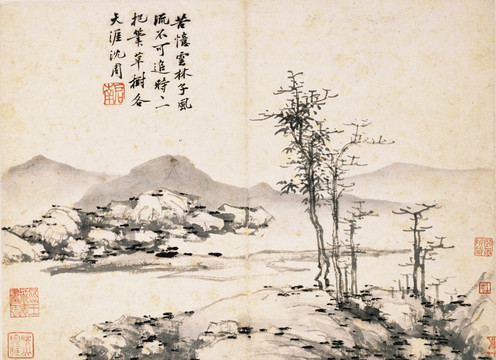 苦憶雲林子風
流不可追時二
把筆草樹各
天涯沈周